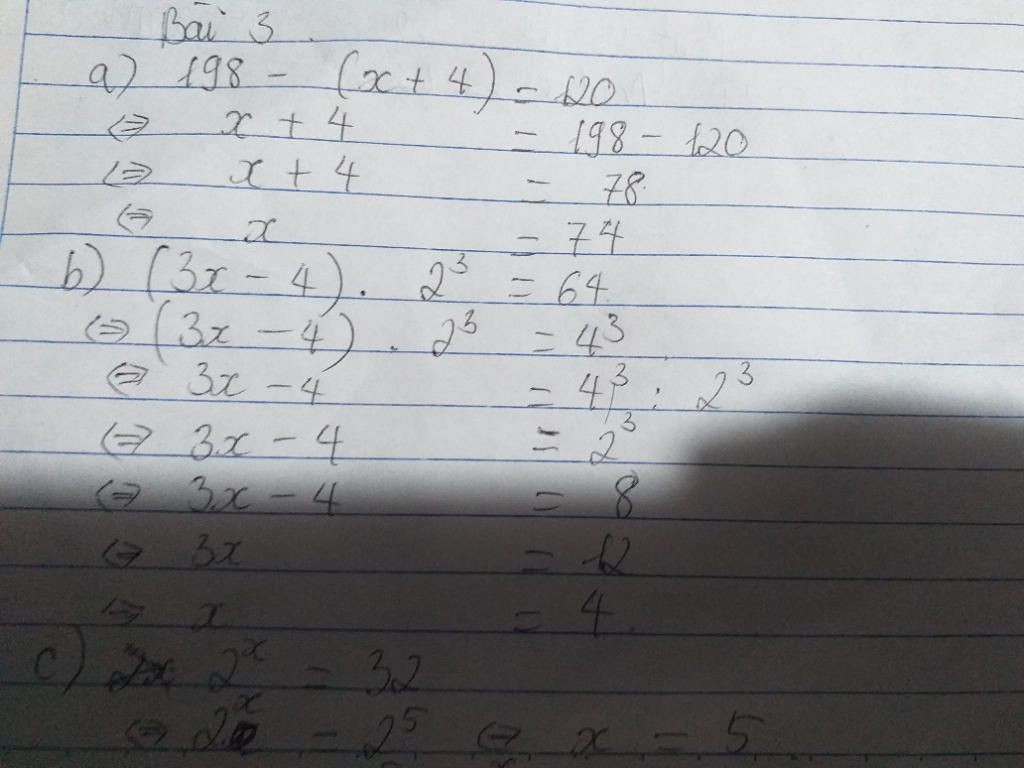 Bài 3.
a) 198 - (x + 4) = 120
⇔ x + 4 = 198 - 120
⇔ x + 4 = 78
⇔ x = 74
b) (3x - 4) . 2³ = 64
⇔ (3x - 4) . 2³ = 4³
⇔ 3x - 4 = 4³ : 2³
⇔ 3x - 4 = 2³
⇔ 3x - 4 = 8
⇔ 3x = 12
⇔ x = 4
c) 2ˣ = 32
⇔ 2ˣ = 2⁵ ⇔ x = 5